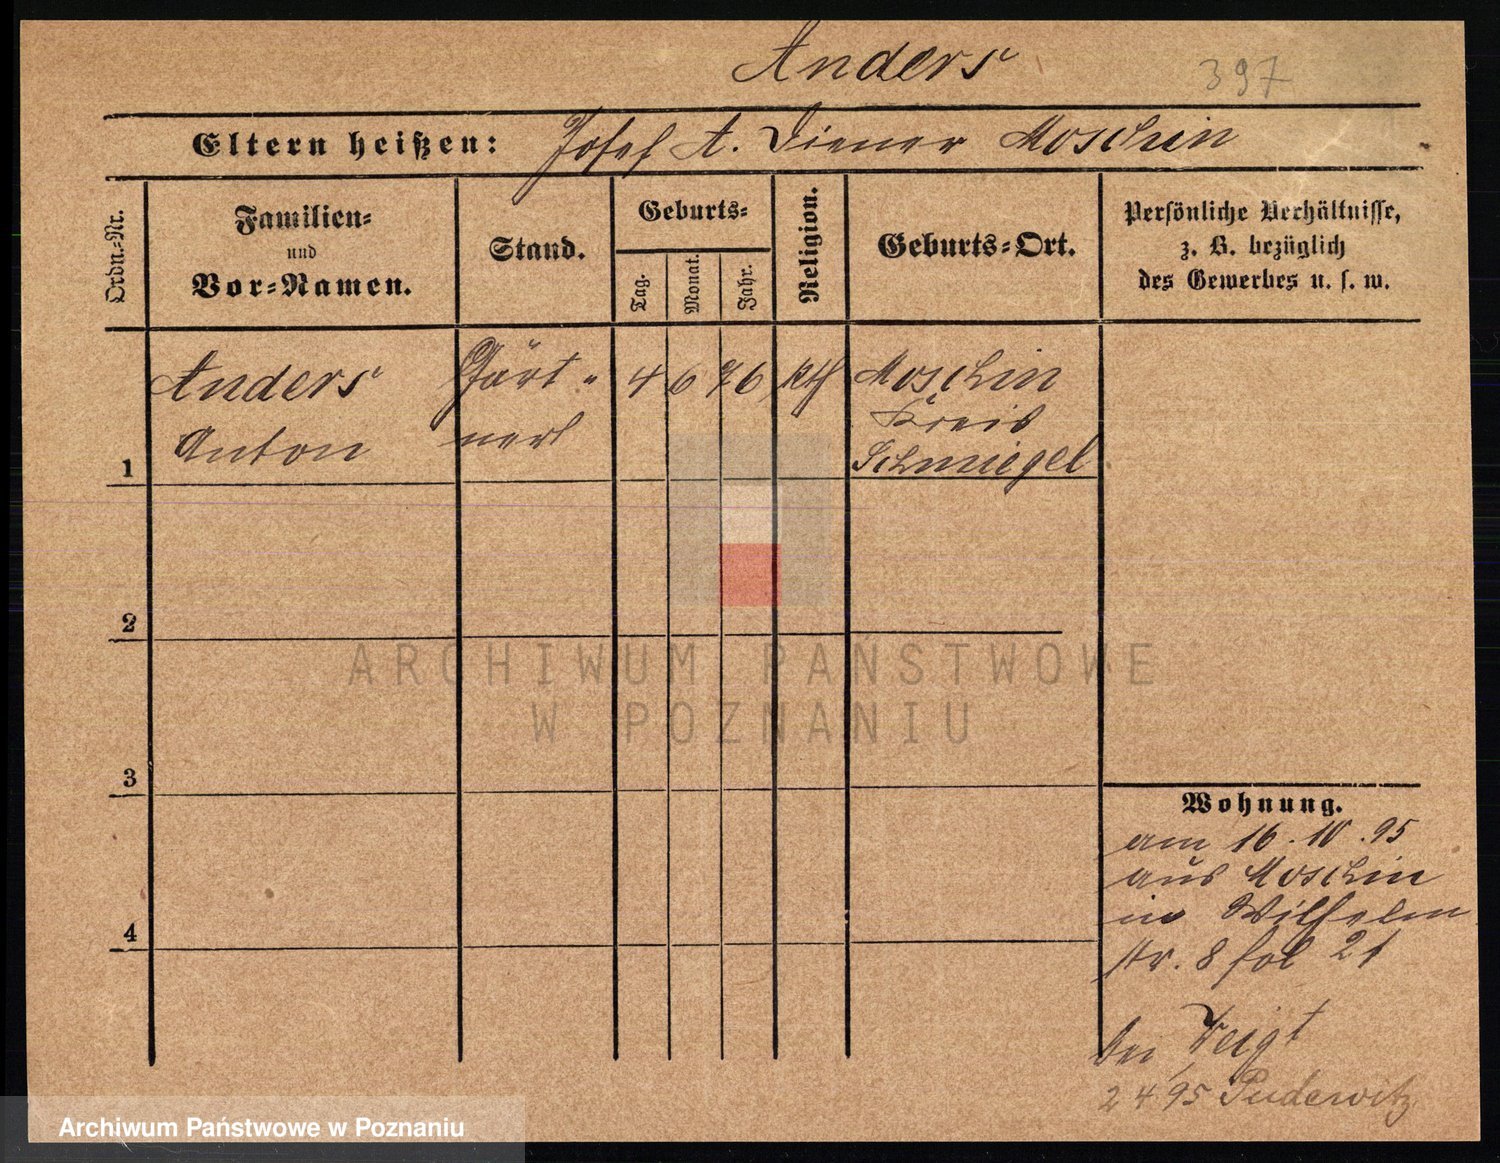 Anders
397
Eltern heißen: Josef A. Diener Moschin
Ordn.-Nr.
Familien-
und
Vor-Namen.
Stand.
Geburts-
Tag.
Monat.
Jahr.
Religion.
Geburts-Ort.
Persönliche Verhältnisse,
z. B. bezüglich
des Gewerbes u. s. w.
1
Anders
Anton
Gärt-
nerl
4
6
76
kth
Moschin
Kreis
Schmiegel
2
3
4
Wohnung.
am 16.10.95
aus Moschin
in Wilhelm
str. 8 fol 21
bei Veigt
2 4 95 Pudewitz
ARCHIWUM PAŃSTWOWE
W POZNANIU
Archiwum Państwowe w Poznaniu